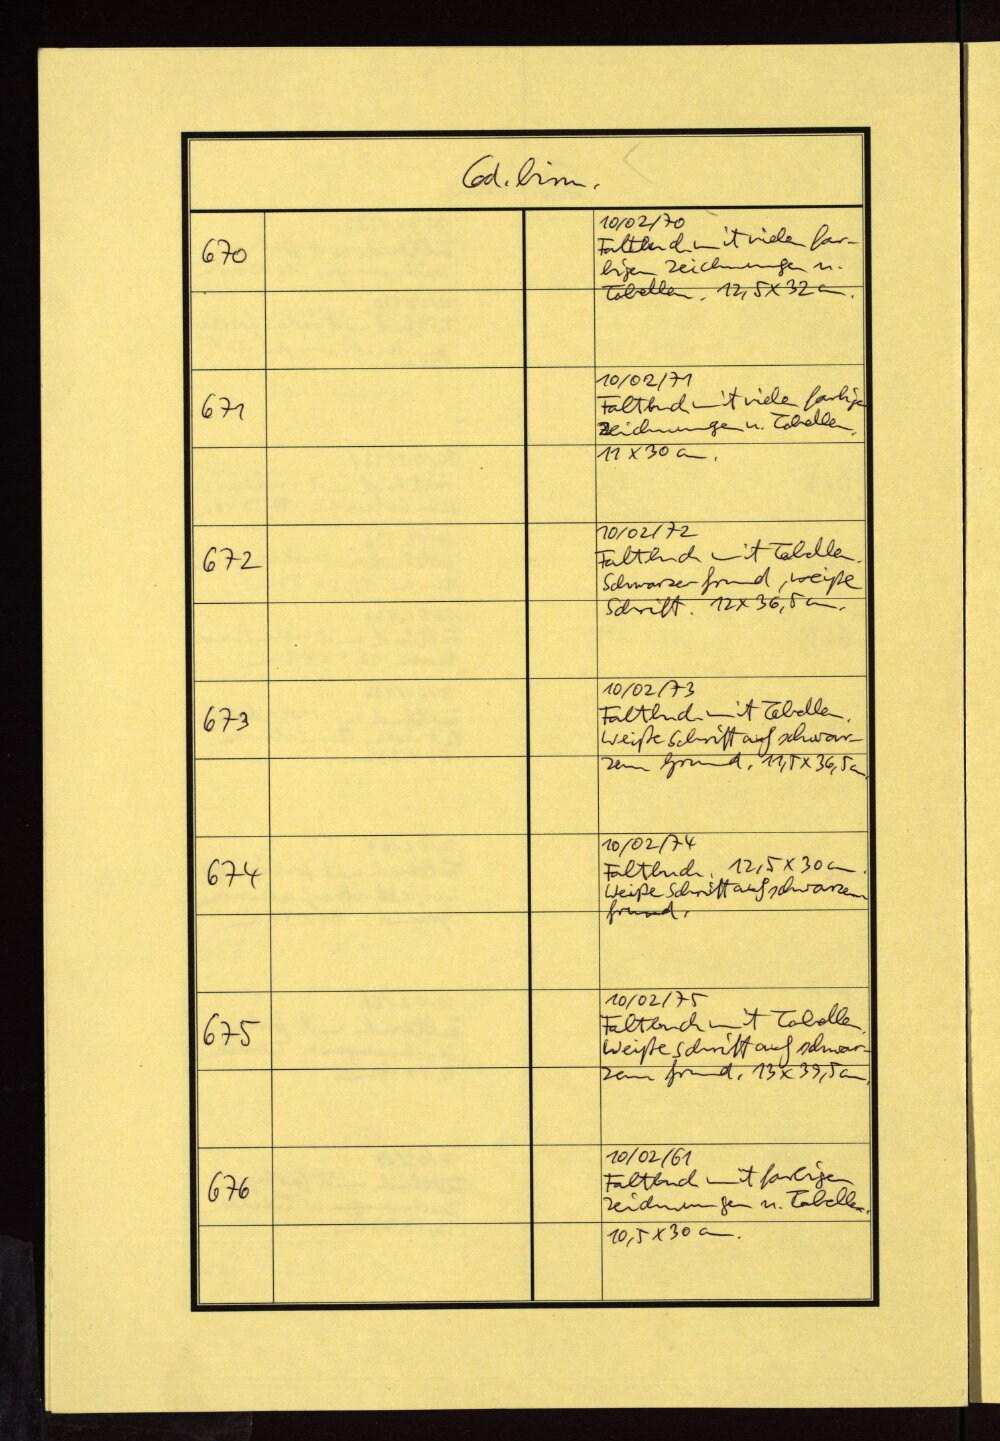 Cod. birm.
670
10/02/70
Faltbuch mit vielen far-
bigen Zeichnungen u.
Tabellen. 12,5 x 32 cm.
671
10/02/71
Faltbuch mit vielen farbigen
Zeichnungen u. Tabellen.
11 x 30 cm.
672
10/02/72
Faltbuch mit Tabellen.
Schwarzer Grund, weiße
Schrift. 12 x 36,5 cm.
673
10/02/73
Faltbuch mit Tabellen.
Weiße Schrift auf schwar-
zem Grund. 11,5 x 36,5 cm.
674
10/02/74
Faltbuch. 12,5 x 30 cm.
Weiße Schrift auf schwarzem
Grund.
675
10/02/75
Faltbuch mit Tabellen.
Weiße Schrift auf schwar-
zem Grund. 13 x 39,5 cm.
676
10/02/61
Faltbuch mit farbigen
Zeichnungen u. Tabellen.
10,5 x 30 cm.